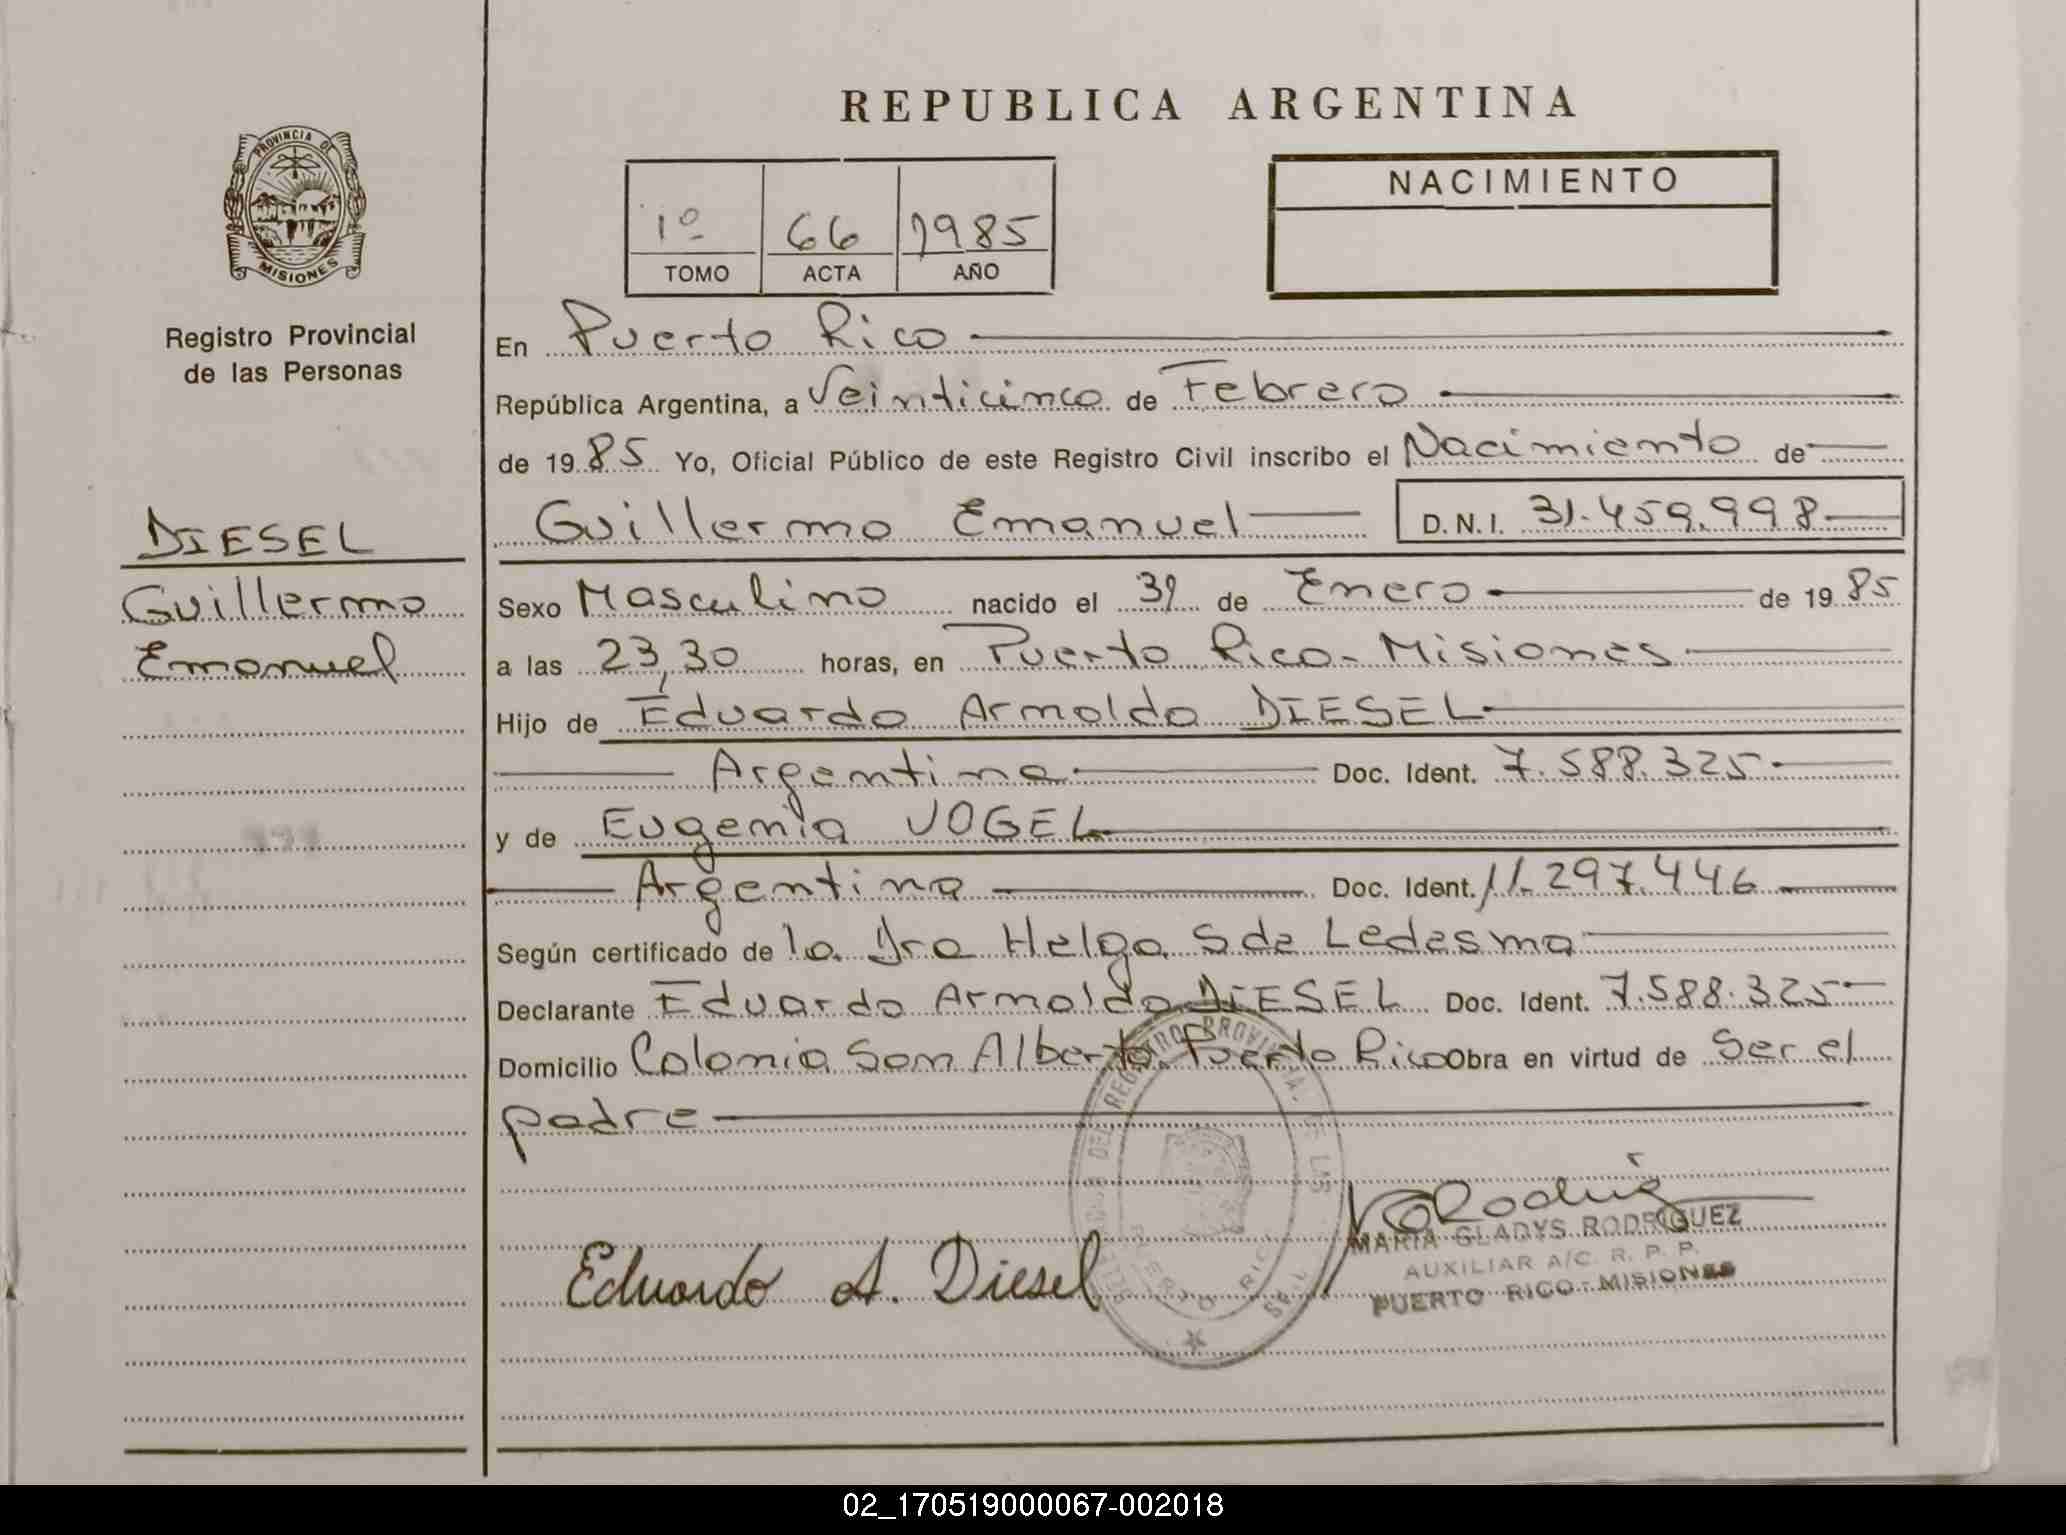 REPUBLICA ARGENTINA
PROVINCIA DE
MISIONES
Registro Provincial
de las Personas
1º 66 1985
TOMO ACTA AÑO
NACIMIENTO
En Puerto Rico
República Argentina, a Veinticinco de Febrero
de 1985 Yo, Oficial Público de este Registro Civil inscribo el Nacimiento de
Guillermo Emanuel D.N.I. 31.459.998
DIESEL
Guillermo
Emanuel
Sexo Masculino nacido el 31 de Enero de 1985
a las 23,30 horas, en Puerto Rico - Misiones
Hijo de Eduardo Arnoldo DIESEL
Argentina Doc. Ident. 7.588.325
y de Eugenia VOGEL
Argentina Doc. Ident. 11.297.446
Según certificado de la Dra Helga S de Ledesma
Declarante Eduardo Arnoldo DIESEL Doc. Ident. 7.588.325
Domicilio Colonia San Alberto Puerto Rico Obra en virtud de Ser el
padre
DEL REGISTRO PROVINCIAL DE LAS
PUERTO RICO
Eduardo A. Diesel
MARIA GLADYS RODRIGUEZ
AUXILIAR A/C. R. P. P.
PUERTO RICO - MISIONES
02_170519000067-002018